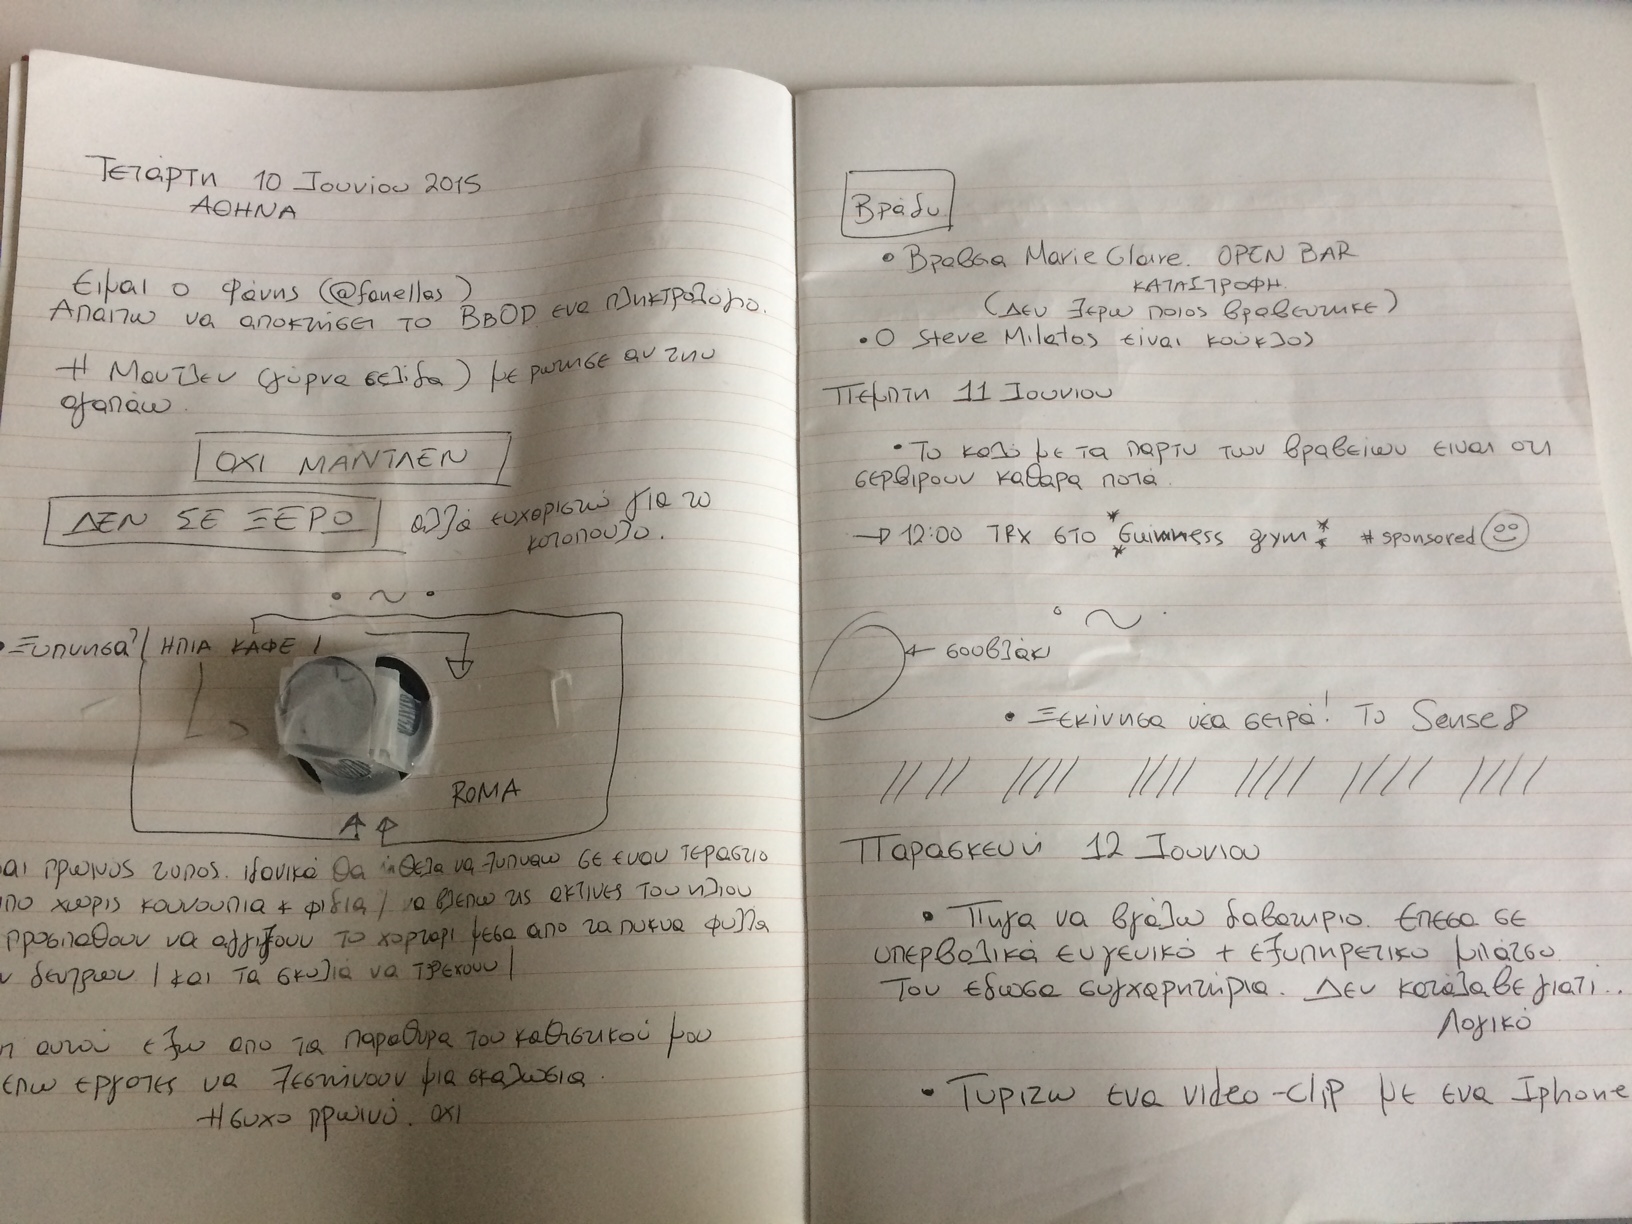 Τετάρτη 10 Ιουνίου 2015
ΑΘΗΝΑ
Ειμαι ο Φάνης (@fanellas)
Απαιτω να αποκτήσει το BBOD ενα πληκτρολόγιο.
Η Μαντλεν (γύρνα σελίδα) με ρωτησε αν την
αγαπάω.
ΟΧΙ ΜΑΝΤΛΕΝ
ΔΕΝ ΣΕ ΞΕΡΩ αλλά ευχαριστώ για το
κοτοπουλο.
• Ξυπνησα? / ΗΠΙΑ ΚΑΦΕ /
ROMA
αι πρωινός τυπος. ιδανικά θα ήθελα να ξυπναω σε εναν τεραστιο
πο χωρις κουνουπια + φιδια / να βλεπω τις ακτινες του ηλιου
προσπαθουν να αγγιξουν το χορταρι μεσα απο τα πυκνα φυλλα
ν δεντρων / και τα σκυλιά να τρεχουν /
αυτού εξω απο τα παραθυρα του καθιστικού μου
επω εργατες να ξεστήνουν μια σκαλωσια.
Ησυχο πρωινό. οχι
Βράδυ
• Βραβεια Marie Claire. OPEN BAR
ΚΑΤΑΣΤΡΟΦΗ.
(Δεν ξερω ποιος βραβευτηκε)
• Ο Steve Milatos είναι κούκλος
Πεμπτη 11 Ιουνιου
• Το καλό με τα παρτυ των βραβείων ειναι οτι
σερβιρουν καθαρα ποτά.
→ 12:00 TRX στο *Guinness gym* #sponsored
← σουβλάκι
• Ξεκίνησα νέα σειρά! Το Sense8
Παρασκευή 12 Ιουνιου
• Πηγα να βγάλω διαβατηριο. Επεσα σε
υπερβολικά ευγενικό + εξυπηρετικο μπάτσο.
Του εδωσα συγχαρητήρια. Δεν κατάλαβε γιατι..
Λογικό
• Γυριζω ενα video-clip με ενα Iphone